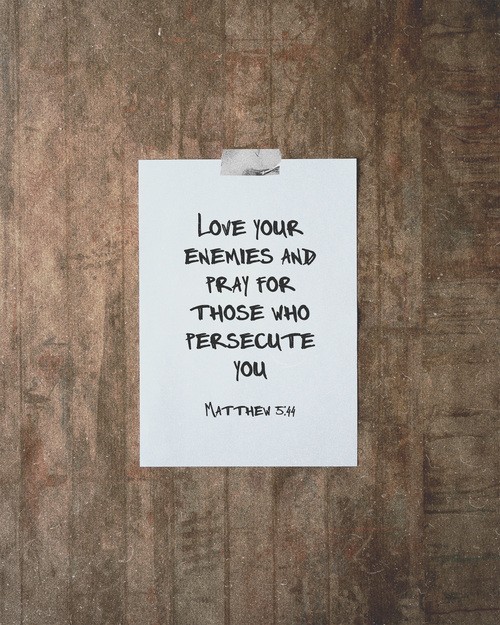 Love your
enemies and
pray for
those who
persecute
you
Matthew 5:44